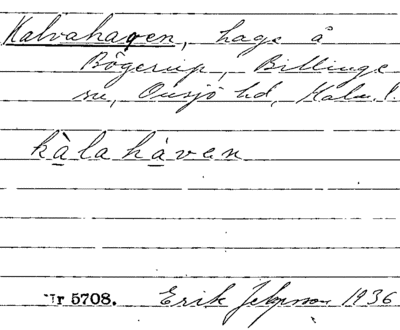 Kalvahagen, hage å
Bögerup, Billinge
sn, Onsjö hd, Malm. l.
kàlahàven
Nr 5708. Erik Jeppsson 1936